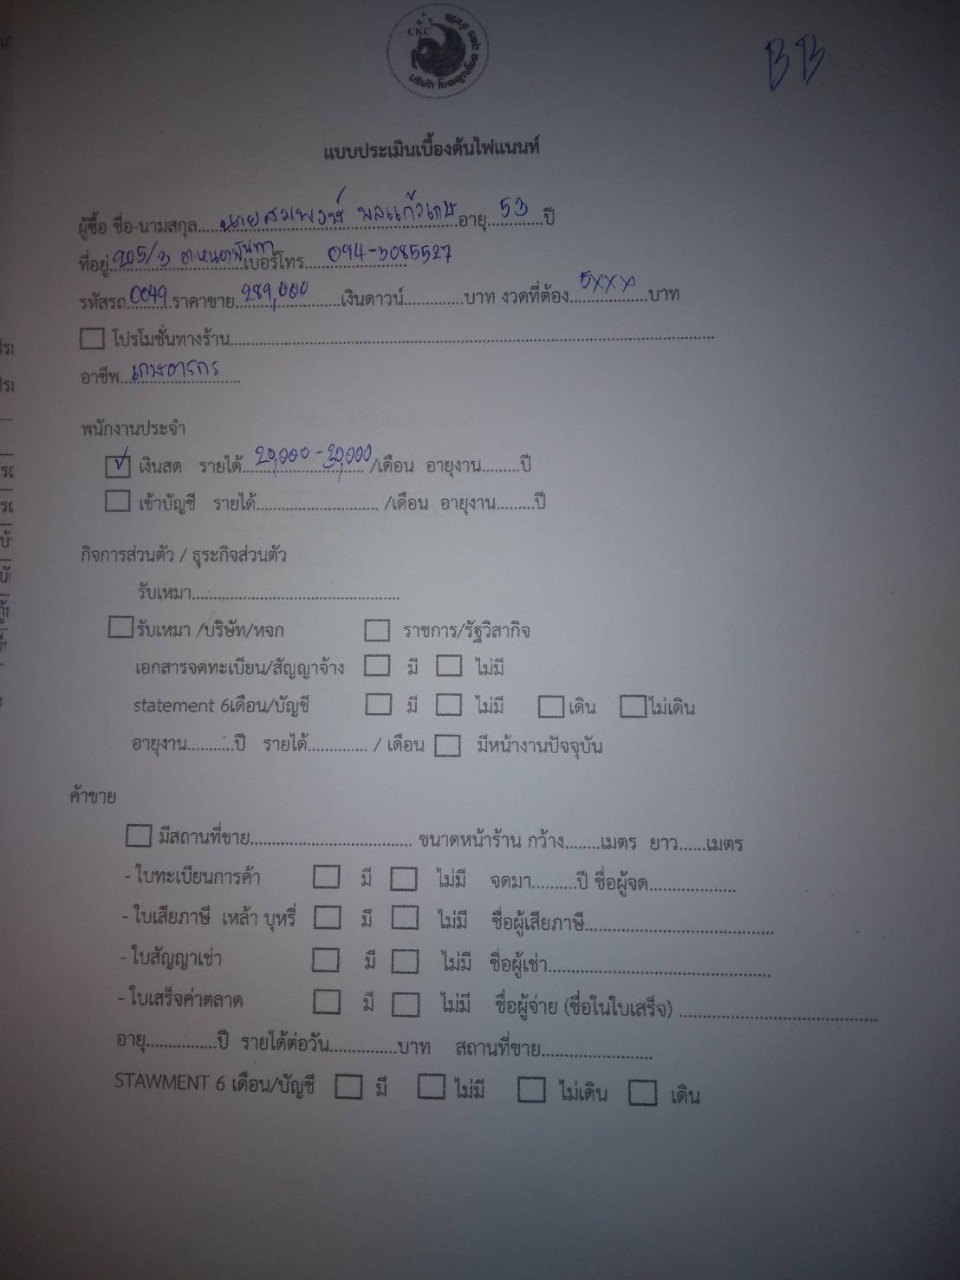 CKC
BB
แบบประเมินเบื้องต้นไฟแนนท์
ผู้ซื้อ ชื่อ-นามสกุล....นายสมพงษ์ พลแก้วเกษ อายุ..53..ปี
ที่อยู่ 205/3 เบอร์โทร...094-3085527
รหัสรถ 0049 ราคาขาย..289,000......เงินดาวน์............บาท งวดที่ต้อง..5xxx..บาท
โปรโมชั่นทางร้าน........................................
อาชีพ..เกษตรกร
พนักงานประจำ
✓ เงินสด รายได้..20,000-30,000../เดือน อายุงาน........ปี
เข้าบัญชี รายได้............................ /เดือน อายุงาน.........ปี
กิจการส่วนตัว / ธุระกิจส่วนตัว
รับเหมา................................................
รับเหมา /บริษัท/หจก ราชการ/รัฐวิสากิจ
เอกสารจดทะเบียน/สัญญาจ้าง มี ไม่มี
statement 6เดือน/บัญชี มี ไม่มี เดิน ไม่เดิน
อายุงาน..........ปี รายได้............. / เดือน มีหน้างานปัจจุบัน
ค้าขาย
มีสถานที่ขาย..................................... ขนาดหน้าร้าน กว้าง........เมตร ยาว......เมตร
- ใบทะเบียนการค้า มี ไม่มี จดมา..........ปี ชื่อผู้จด...................
- ใบเสียภาษี เหล้า บุหรี่ มี ไม่มี ชื่อผู้เสียภาษี...........................................
- ใบสัญญาเช่า มี ไม่มี ชื่อผู้เช่า..................................................
- ใบเสร็จค่าตลาด มี ไม่มี ชื่อผู้จ่าย (ชื่อในใบเสร็จ) ............................................
อายุ................ปี รายได้ต่อวัน...............บาท สถานที่ขาย.........................
STAWMENT 6 เดือน/บัญชี มี ไม่มี ไม่เดิน เดิน